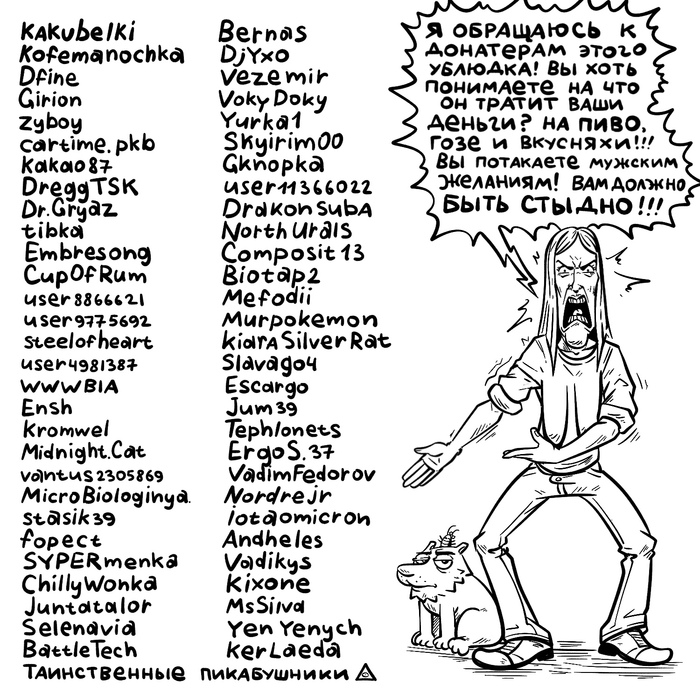 Kakubelki
Kofemanochka
Dfine
Girion
zyboy
cartime.pkb
Kakao87
DreggTSK
Dr.Gryaz
tibka
Embresong
CupOfRum
user8866621
user9775692
steelofheart
user4981387
WWWBIA
Ensh
Kromwel
Midnight.Cat
vantus2305869
MicroBiologinya.
stasik39
fopect
SYPERmenka
ChillyWonka
Juntatalor
Selenavia
BattleTech
Bernas
DjYxo
Vezemir
VokyDoky
Yurka1
Skyirim00
Gknopka
user11366022
DrakonSubA
NorthUrals
Composit13
Biotap2
Mefodii
Murpokemon
kiaraSilverRat
Slavago4
Escargo
Jum39
Tephlonets
ErgoS.37
VadimFedorov
Nordrejr
iotaomicron
Andheles
Vadikys
Kixone
MsSilva
YenYenych
kerLaeda
Таинственные пикабушники
Я ОБРАЩАЮСЬ К
ДОНАТЕРАМ ЭТОГО
УБЛЮДКА! ВЫ ХОТЬ
ПОНИМАЕТЕ НА ЧТО
ОН ТРАТИТ ВАШИ
ДЕНЬГИ? НА ПИВО,
ГОЗЕ И ВКУСНЯХИ!!!
ВЫ ПОТАКАЕТЕ МУЖСКИМ
ЖЕЛАНИЯМ! ВАМ ДОЛЖНО
БЫТЬ СТЫДНО!!!